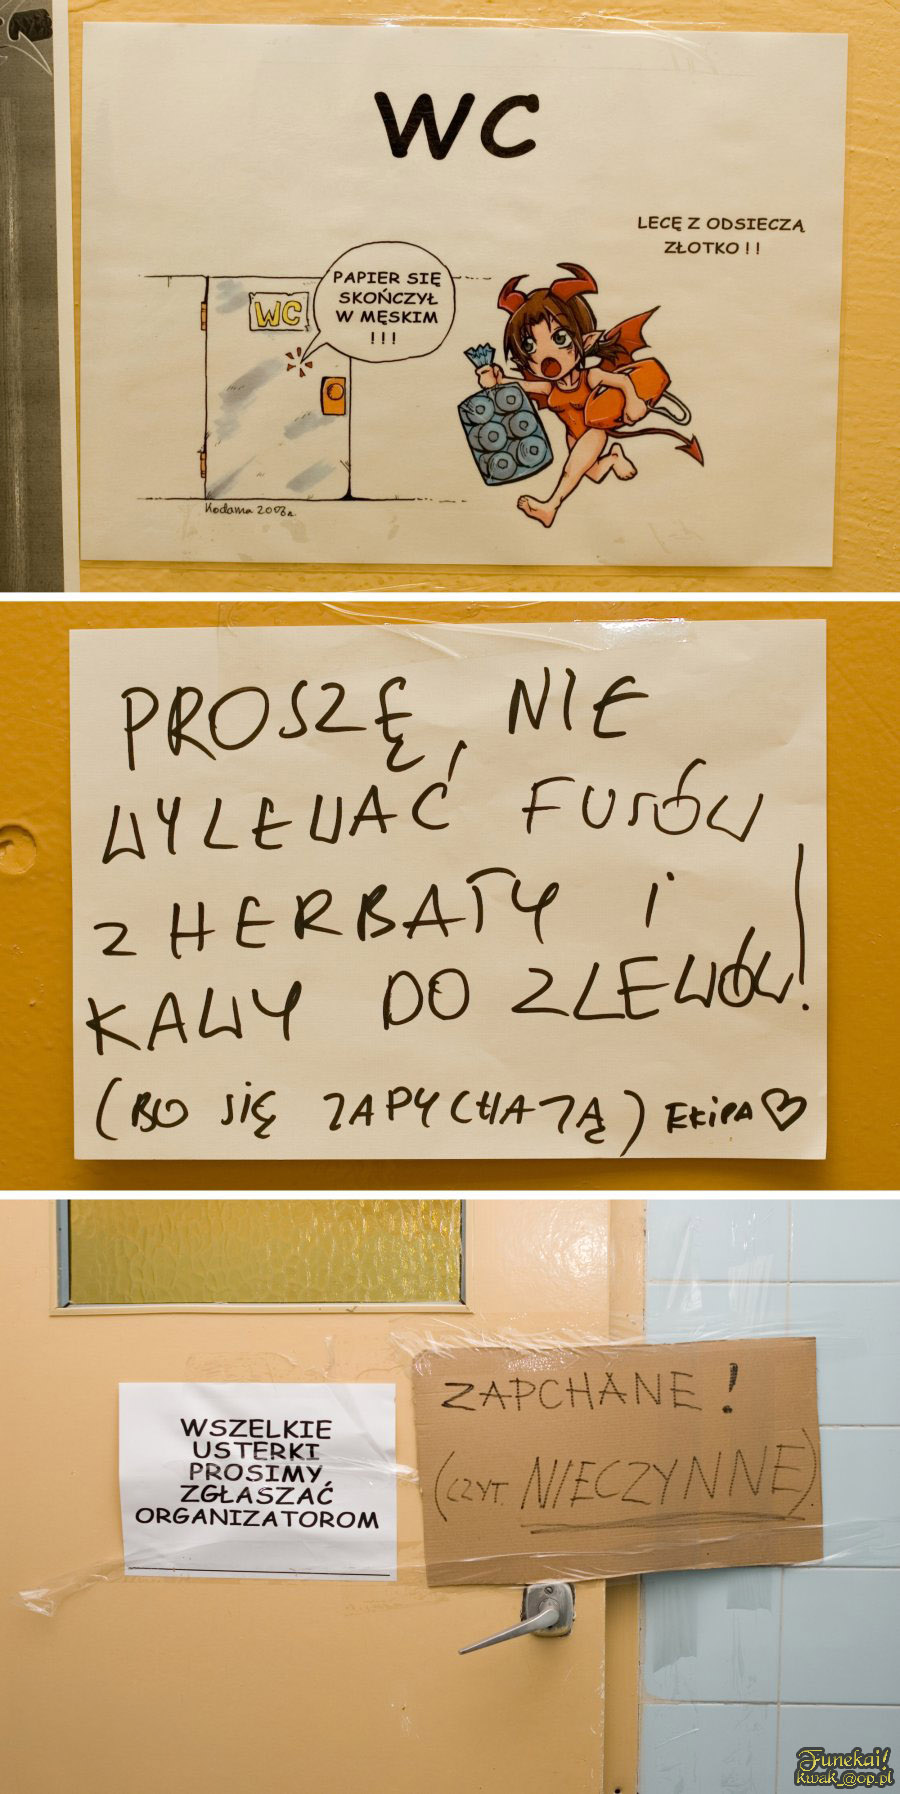 WC
LECĘ Z ODSIECZĄ
ZŁOTKO ! !
PAPIER SIĘ
SKOŃCZYŁ
W MĘSKIM
! ! !
WC
Kodama 2006r.
PROSZĘ, NIE
WYLEWAĆ FUSÓW
Z HERBATY I
KAWY DO ZLEWÓW!
(BO SIĘ ZAPYCHAJĄ) EKIPA ♡
WSZELKIE
USTERKI
PROSIMY
ZGŁASZAĆ
ORGANIZATOROM
ZAPCHANE!
(CZYT. NIECZYNNE).
Funekai!
kwak_@op.pl